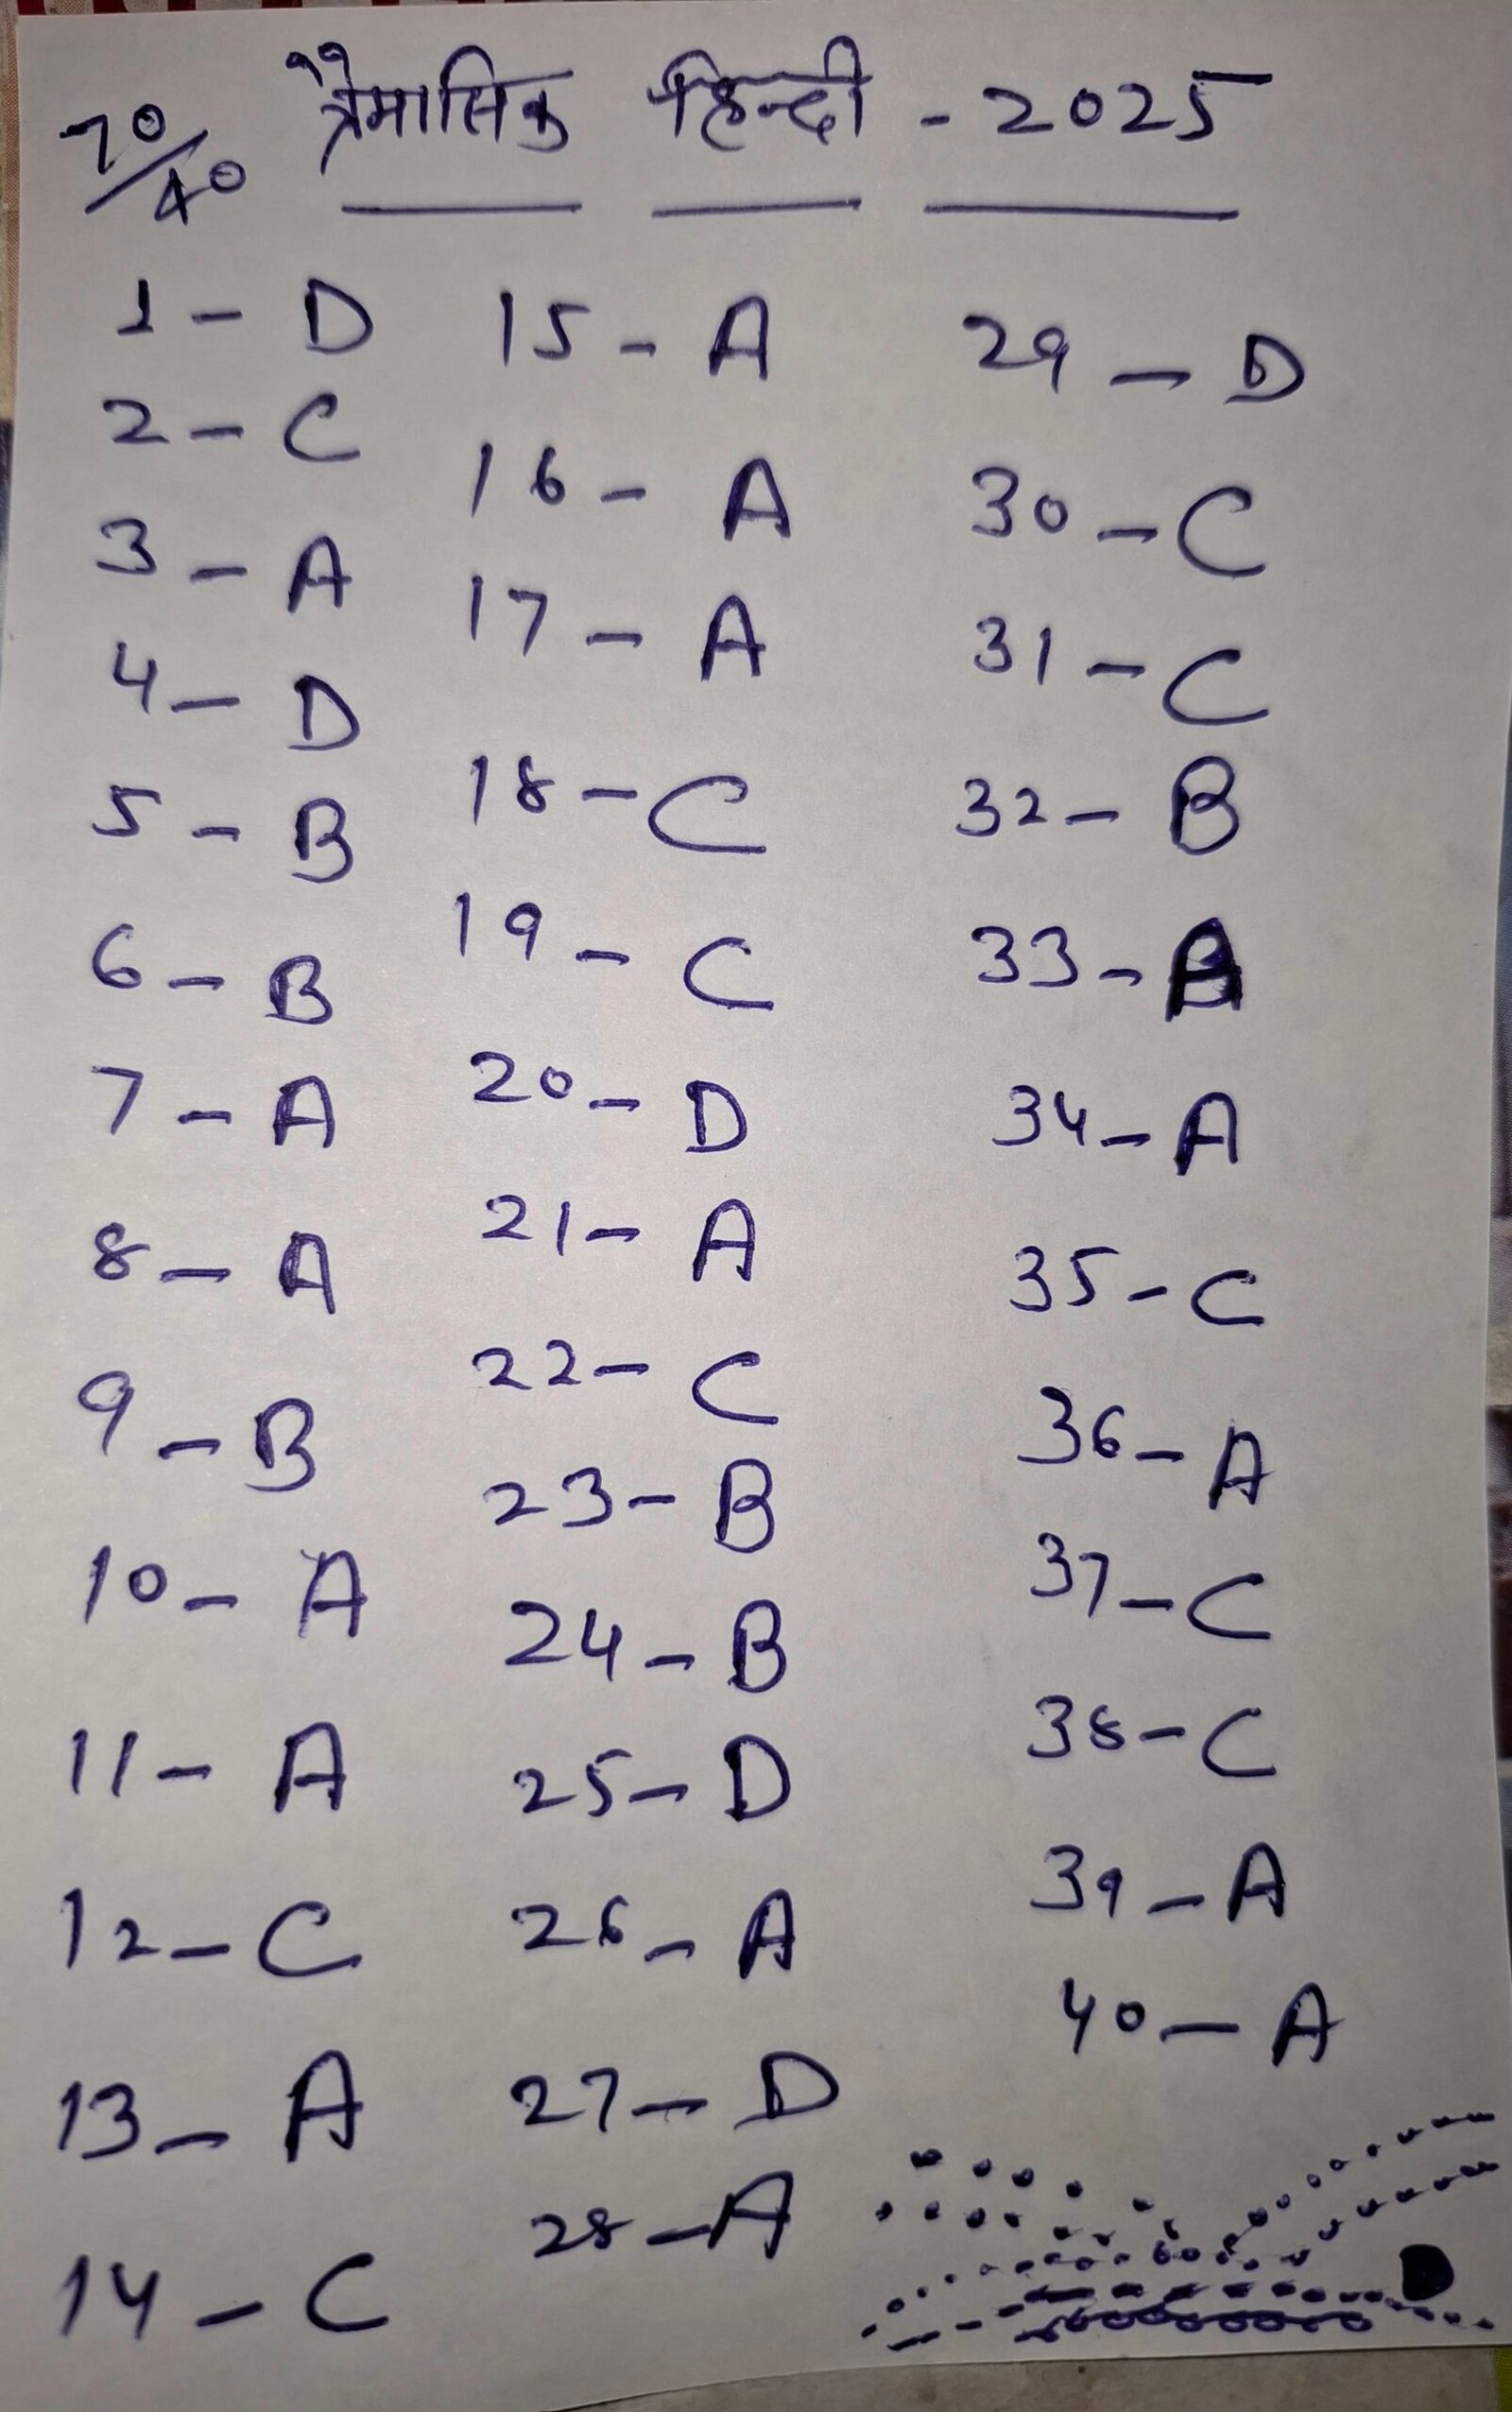 त्रैमासिक हिन्दी - 2025
70/40
1 - D
2 - C
3 - A
4 - D
5 - B
6 - B
7 - A
8 - A
9 - B
10 - A
11 - A
12 - C
13 - A
14 - C
15 - A
16 - A
17 - A
18 - C
19 - C
20 - D
21 - A
22 - C
23 - B
24 - B
25 - D
26 - A
27 - D
28 - A
29 - D
30 - C
31 - C
32 - B
33 -
34 - A
35 - C
36 - A
37 - C
38 - C
39 - A
40 - A